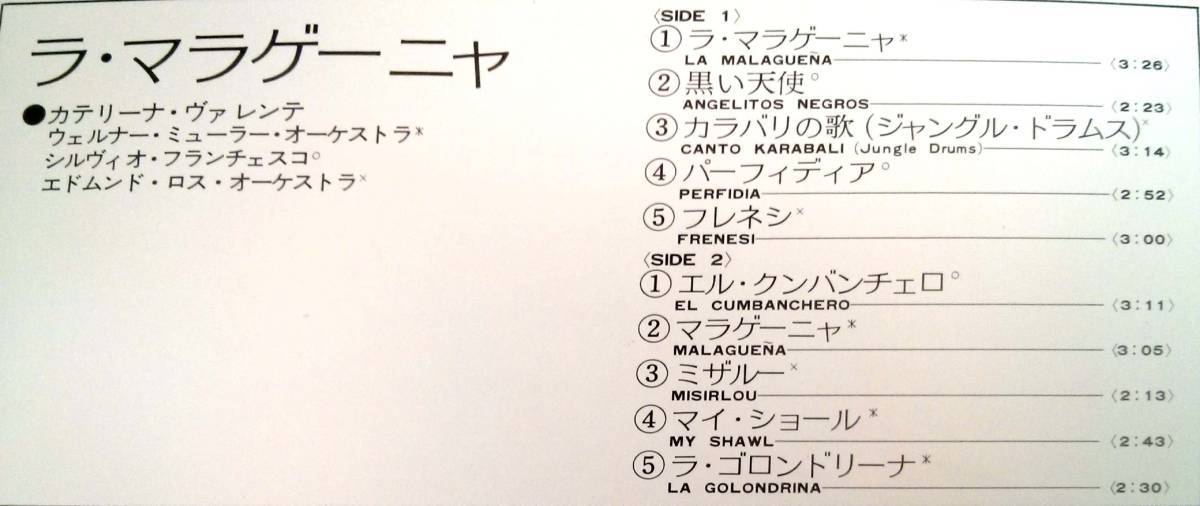 ラ・マラゲーニャ
●カテリーナ・ヴァレンテ
ウェルナー・ミューラー・オーケストラ*
シルヴィオ・フランチェスコ○
エドムンド・ロス・オーケストラ×
〈SIDE 1〉
① ラ・マラゲーニャ*
LA MALAGUEÑA 〈3:26〉
② 黒い天使○
ANGELITOS NEGROS 〈2:23〉
③ カラバリの歌(ジャングル・ドラムス)×
CANTO KARABALI (Jungle Drums) 〈3:14〉
④ パーフィディア○
PERFIDIA 〈2:52〉
⑤ フレネシ×
FRENESI 〈3:00〉
〈SIDE 2〉
① エル・クンバンチェロ○
EL CUMBANCHERO 〈3:11〉
② マラゲーニャ*
MALAGUEÑA 〈3:05〉
③ ミザルー×
MISIRLOU 〈2:13〉
④ マイ・ショール*
MY SHAWL 〈2:43〉
⑤ ラ・ゴロンドリーナ*
LA GOLONDRINA 〈2:30〉